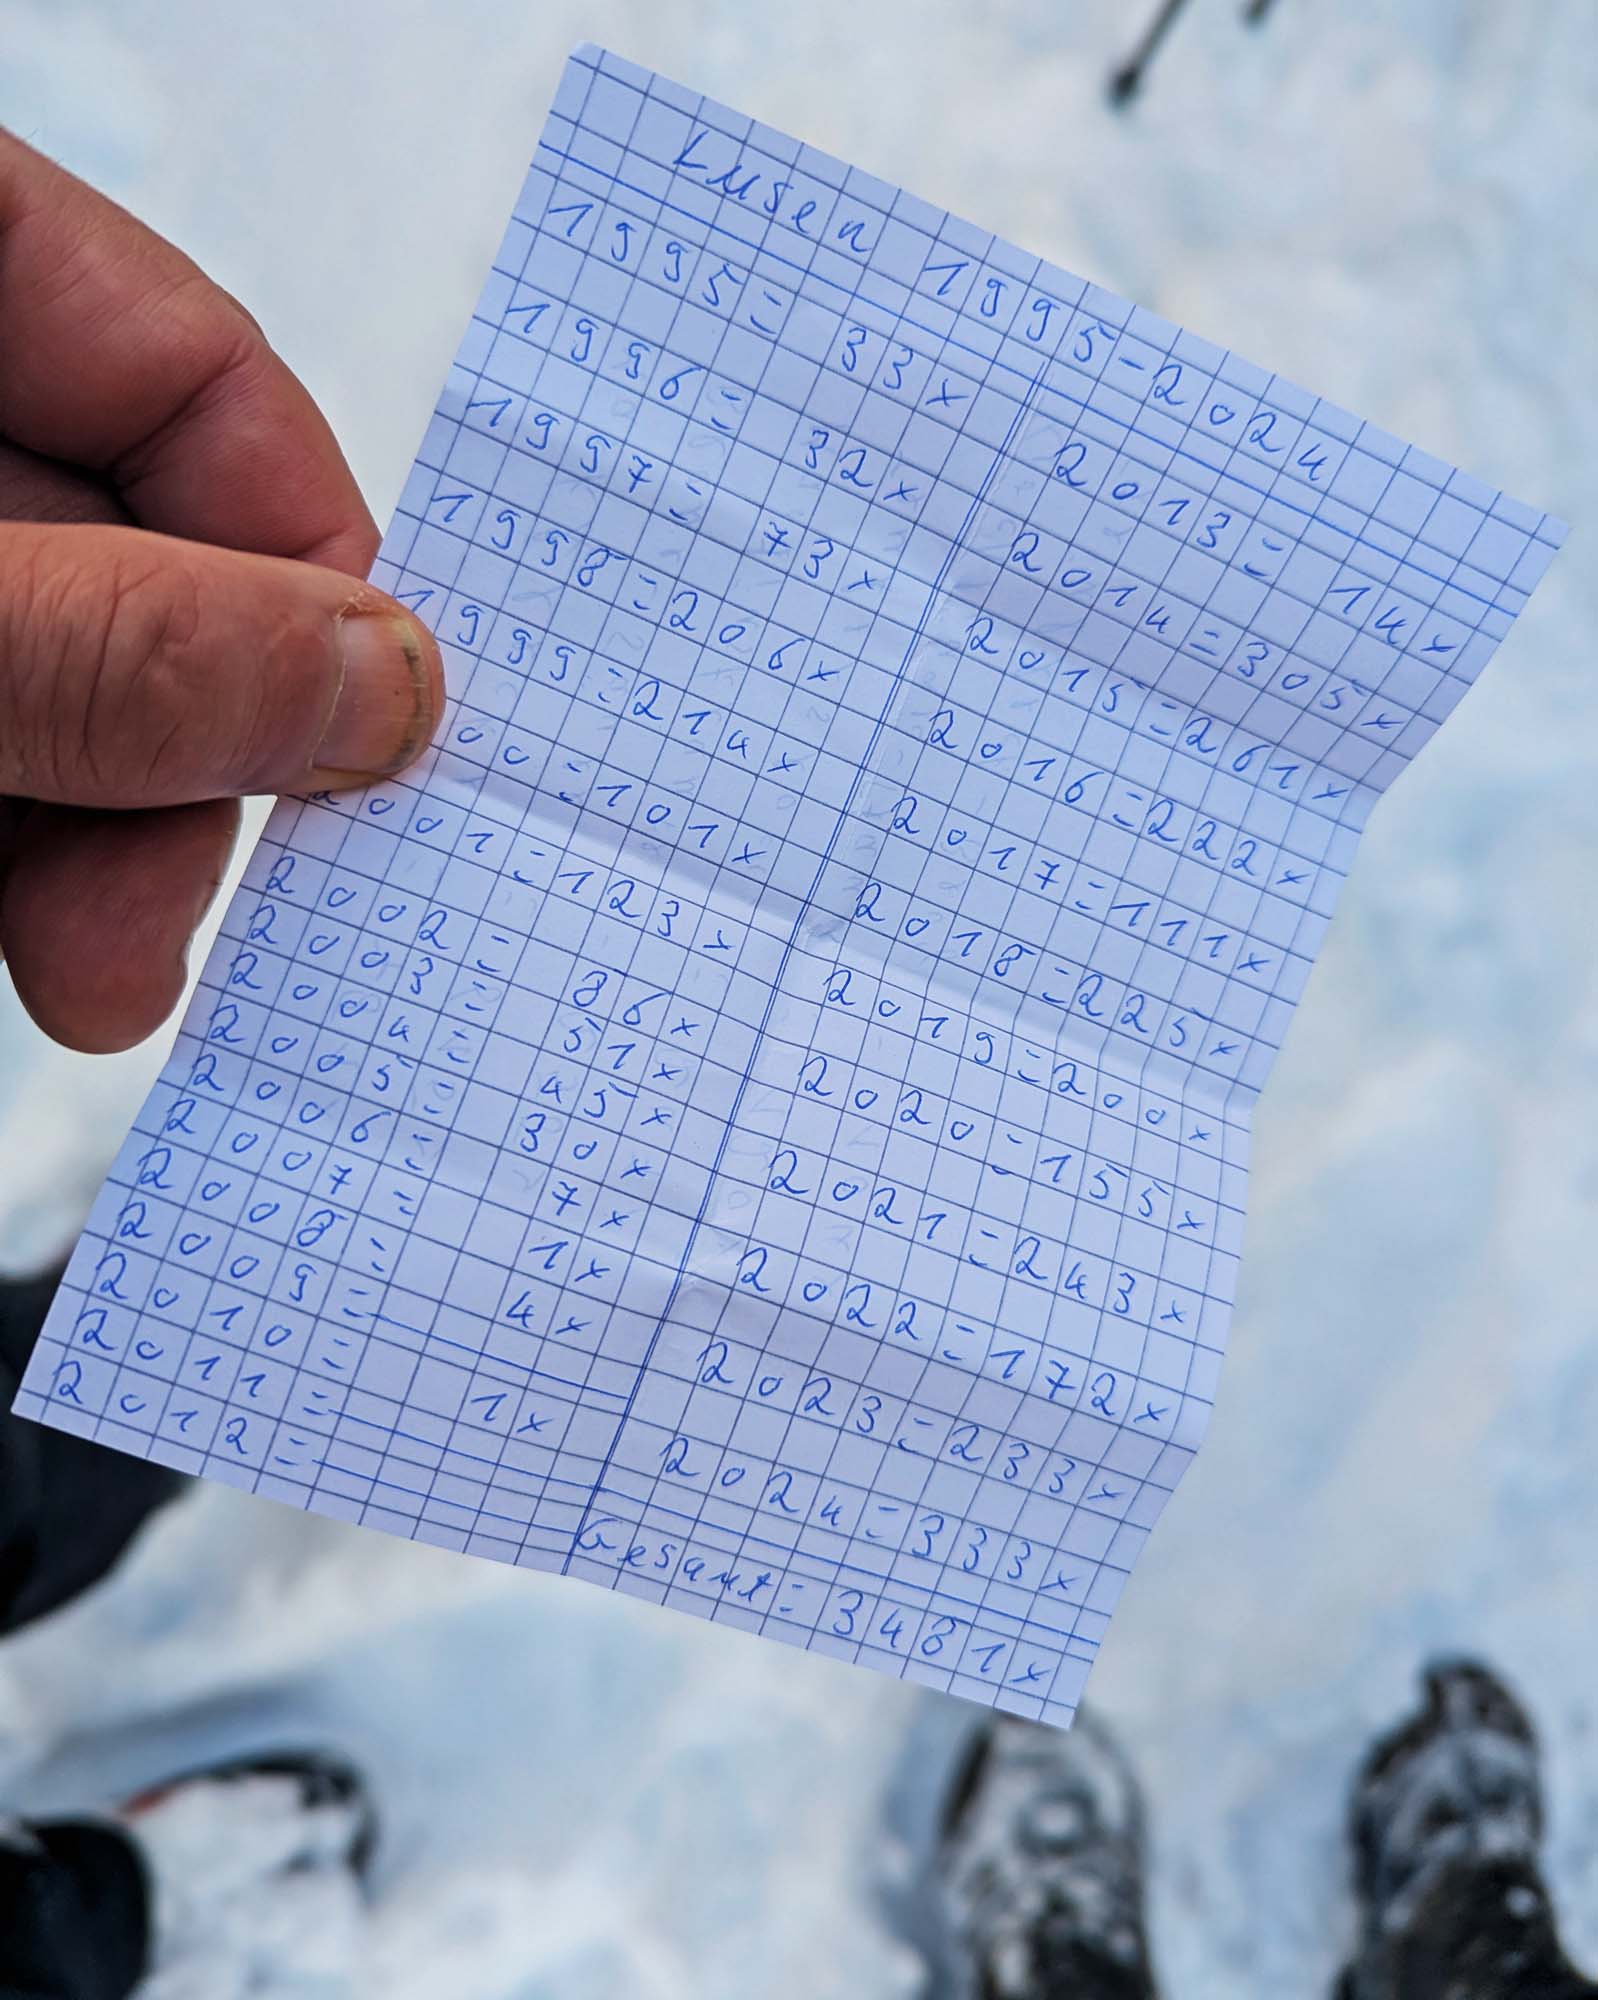 Lusen 1995-2024
1995= 33x
1996= 32x
1997= 73x
1998=206x
1999=214x
00=101x
2001=123x
2002= 86x
2003= 51x
2004= 45x
2005= 30x
2006= 7x
2007= 1x
2008= 4x
2009= —
2010= 1x
2011= —
2012= —
2013= 14x
2014=305x
2015=261x
2016=222x
2017=111x
2018=225x
2019=200x
2020=155x
2021=243x
2022=172x
2023=233x
2024=333x
Gesamt=3481x